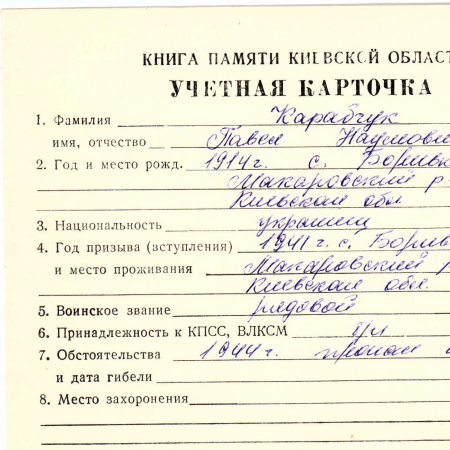 КНИГА ПАМЯТИ КИЕВСКОЙ ОБЛАСТ
УЧЕТНАЯ КАРТОЧКА
1. Фамилия Карабчук
имя, отчество Павел Наумови
2. Год и место рожд. 1914 г. с. Боривк
Макаровский р
Киевская обл
3. Национальность украинец
4. Год призыва (вступления) 1941 г. с. Борив
и место проживания Макаровский р
Киевская обл.
5. Воинское звание рядовой
6. Принадлежность к КПСС, ВЛКСМ
7. Обстоятельства 1944 г. пропал
и дата гибели
8. Место захоронения